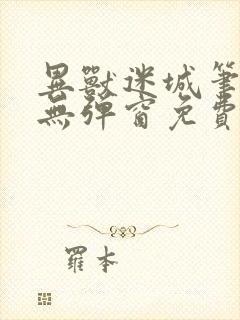 異獸迷城筆
無彈窗免費
羅本